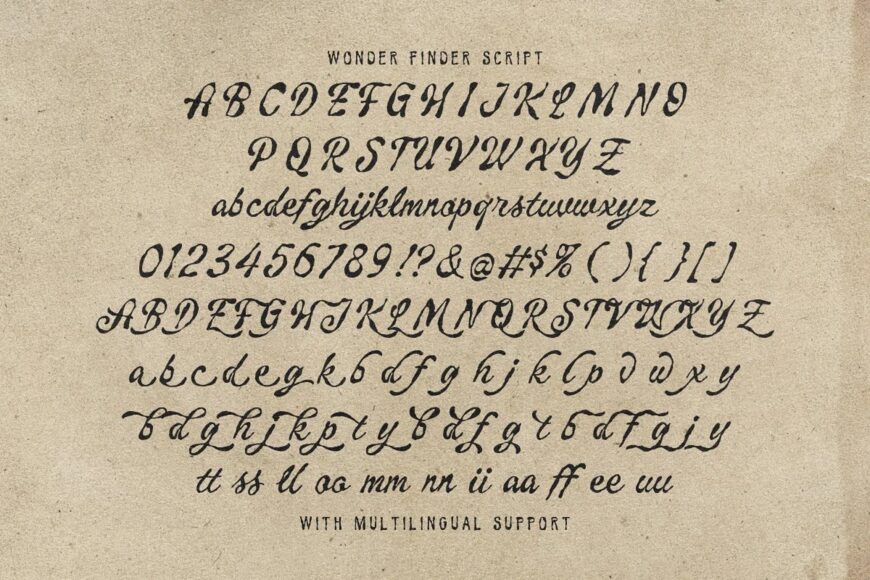 WONDER FINDER SCRIPT
ABCDEFGHIJKLMNO
PQRSTUVWXYZ
abcdefghijklmnopqrstuvwxyz
0123456789!?&@#$%(){}[]
ABDEFGHJKLMNQRSTVWXYZ
abcdegkbdfghjklpvwxy
bdghjkptybdfgtbdfgjy
tt ss ll oo mm nn ii aa ff ee uu
WITH MULTILINGUAL SUPPORT